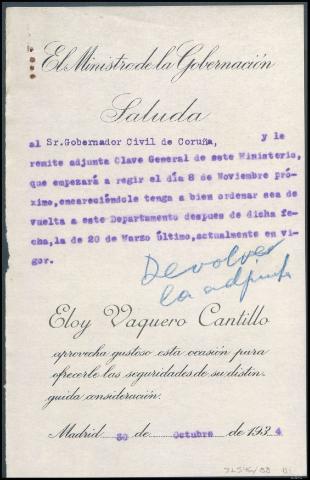 El Ministro de la Gobernación
Saluda
al Sr. Gobernador Civil de Coruña, y le
remite adjunta Clave General de sete Ministerio,
que empezará a regir el día 8 de Noviembre pró-
ximo, encareciéndole tenga a bien ordenar sea de-
vuelta a este Departamento despues de dicha fe-
cha, la de 20 de Marzo último, actualmente en vi-
gor.
Devolver
la adjunta
Eloy Vaquero Cantillo
aprovecha gustoso esta ocasión para
ofrecerle las seguridades de su distin-
guida consideración.
Madrid 30 de Octubre de 1934